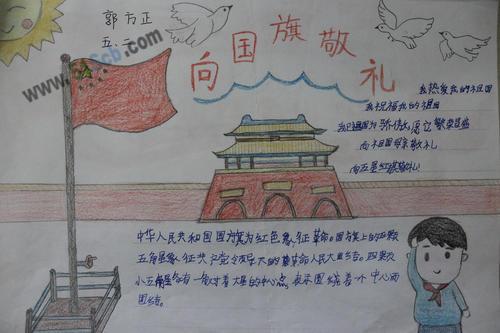 郭方正
五.二
向国旗敬礼
我热爱我的祖国
我祝福我的祖国
我祖国为
愿它繁荣昌盛
向祖国母亲敬礼
向五星红旗敬礼!
中华人民共和国国旗为红色象征革命。国旗上的五颗
五角星象征共产党领导下的革命人民大团结。四颗
小五角星各有一角对着大星的中心点,表示围绕着一个中心而
团结。